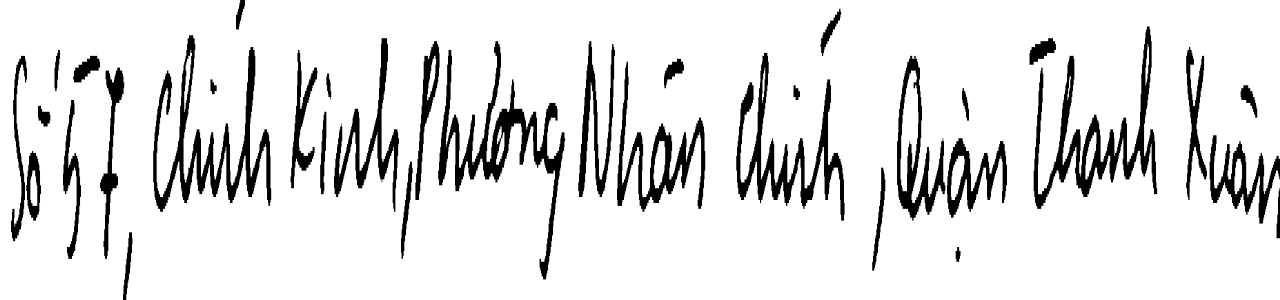 Số 57, Chính Kinh, Phường Nhân Chính, Quận Thanh Xuân